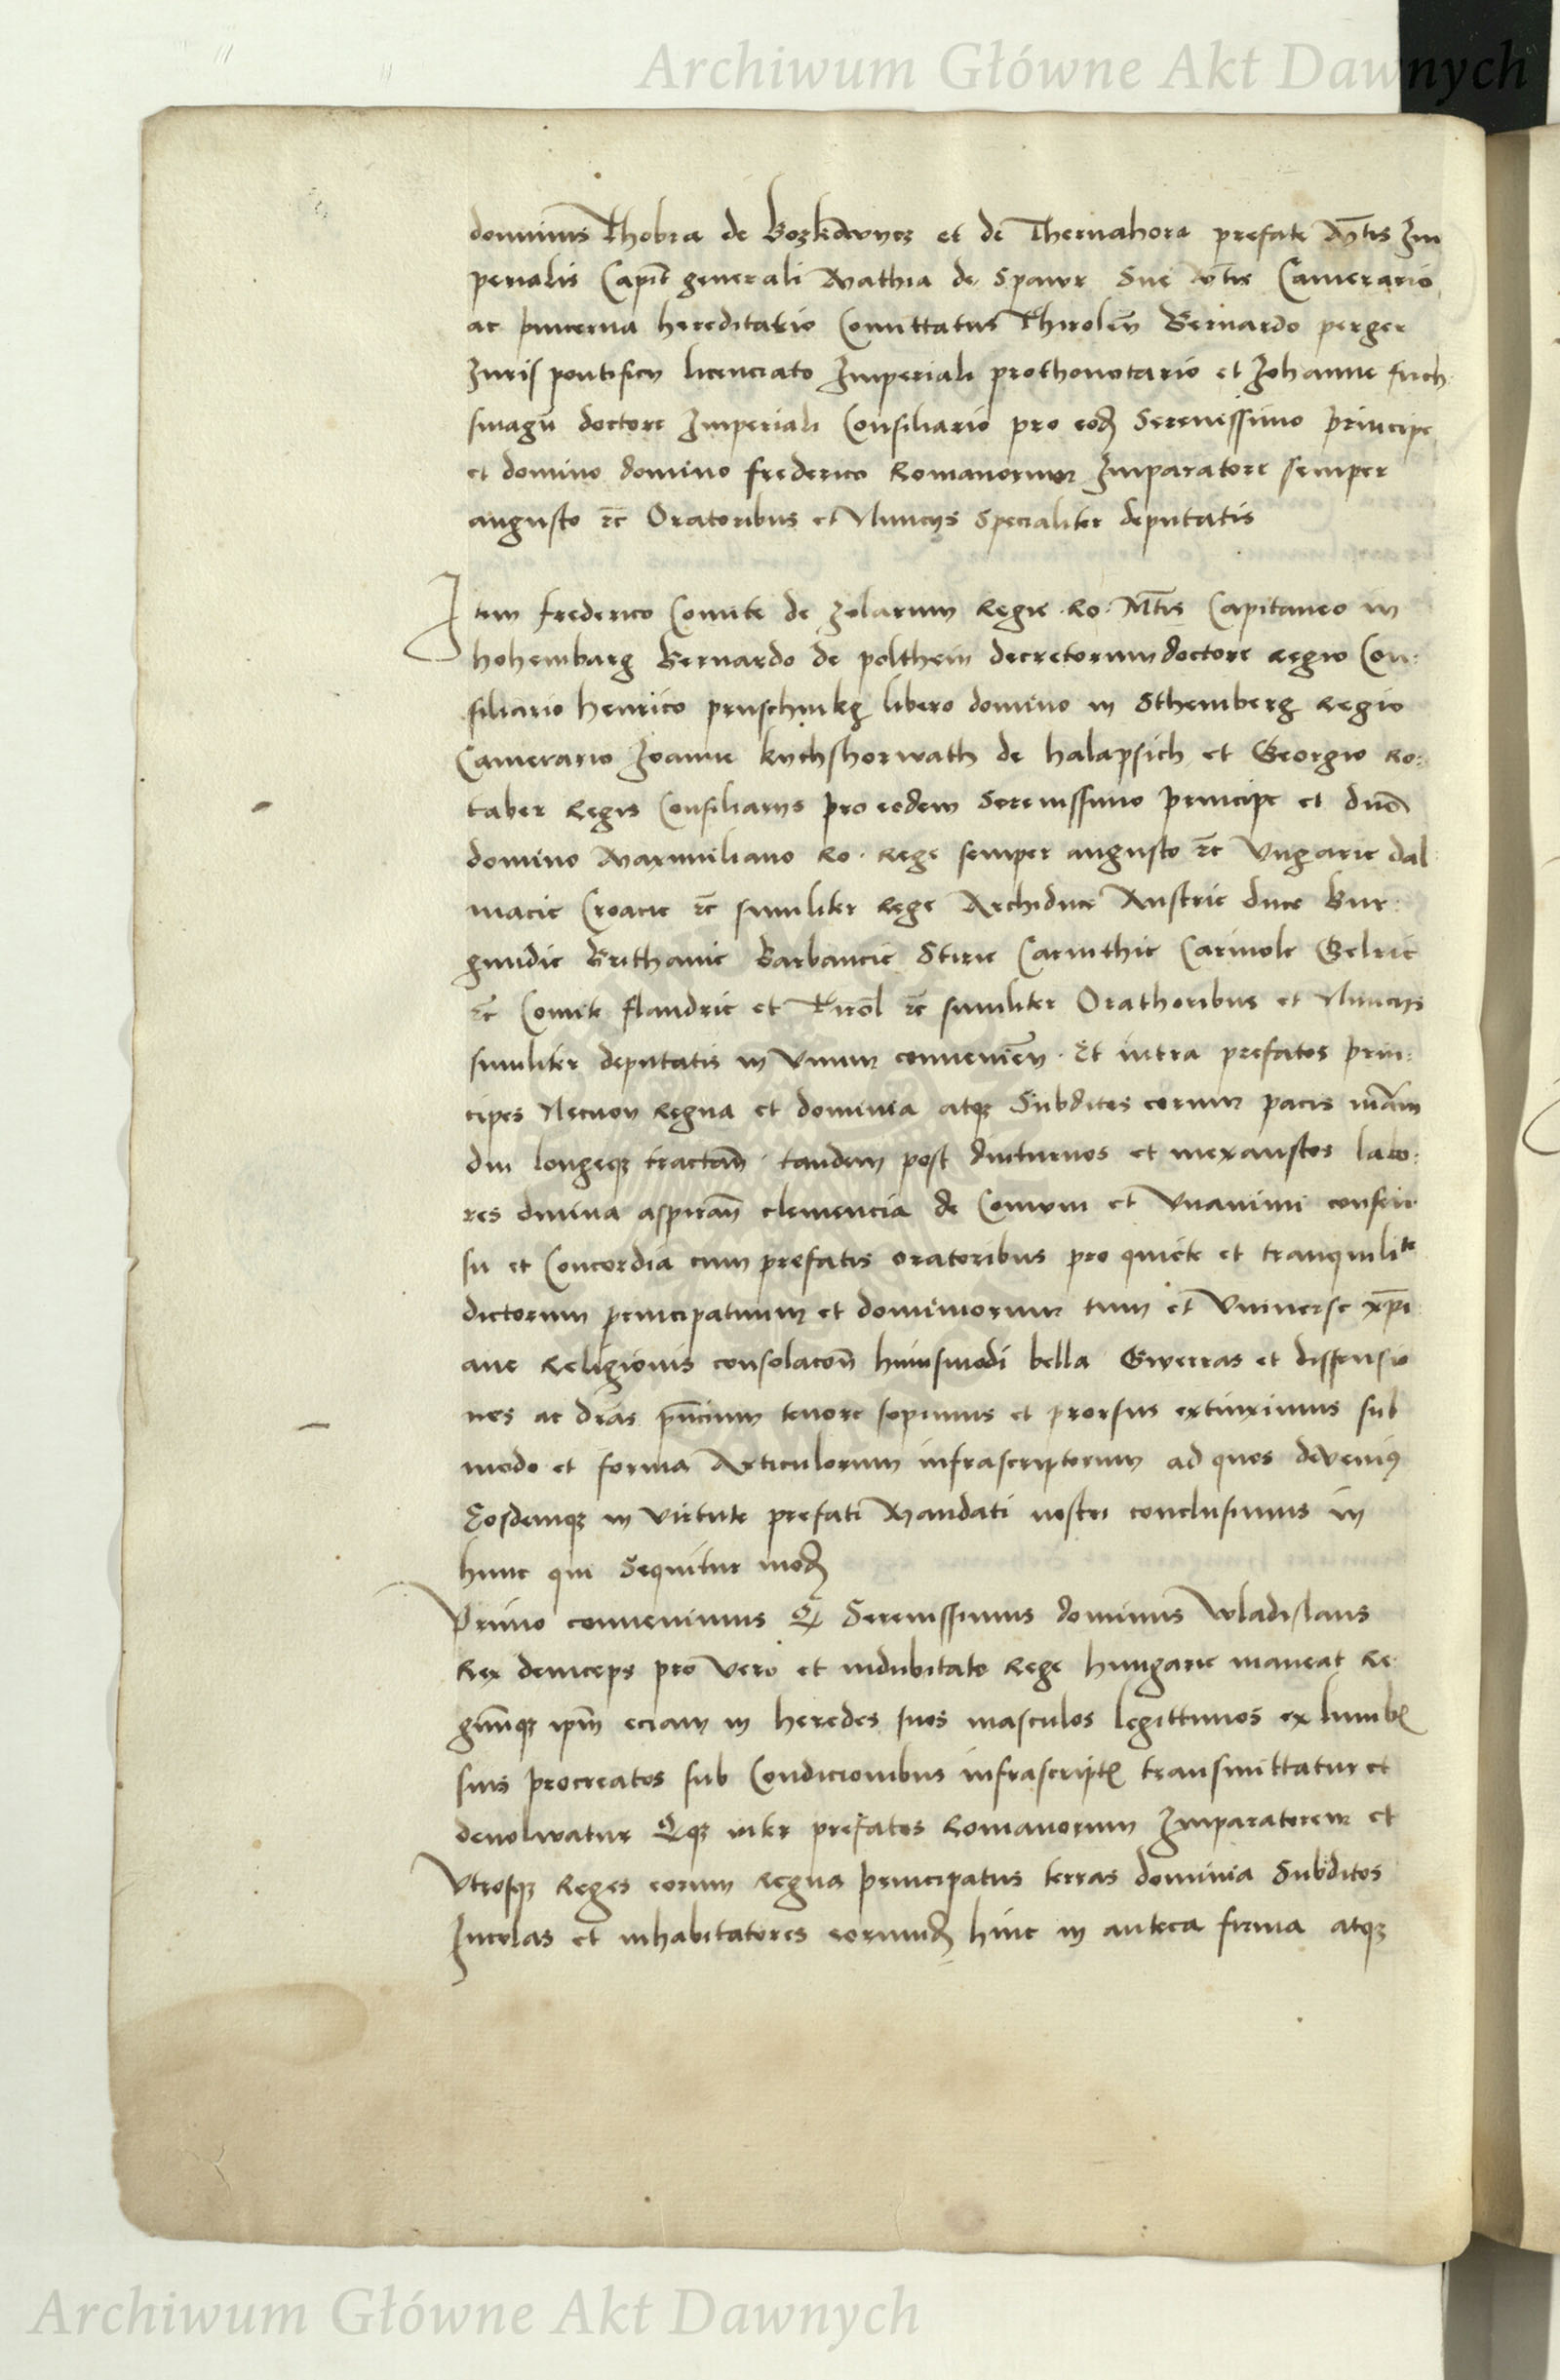 Archiwum Główne Akt Dawnych
dominus Thobia de Bozkdwÿncz et de Thernahora prefate Mtis Im
perialis Capit generali Mathia de Spawr Sue Mtis Camerario
ac pincerna hereditario Comittatus Thirolen Bernardo perger
Juris pontificy licenciato Imperiali prothonotario et Johanne fuch:
smagn doctore Imperiali Consiliario pro eod Serenissimo principe
et domino domino frederico Romanorum Imparatore semper
augusto etc Oratoribus et Nuncys Specialiter deputatis
Item frederico Comite de Zolarum Regie Ro. Mtis Capitaneo in
hohembarg Bernardo de polthein decretorum doctore regio Con:
siliario Henrico pruschinkg libero domino in Sthemberg Regio
Camerario Joanne kychshorwath de halapsich et Georgio Ro:
taber Regis Consiliarys pro eodem Serenissimo principe et duo
domino Maximiliano Ro. Rege semper augusto etc Vngarie dal:
macie Croacie etc similiter Rege Archiduce Austrie duce Bur:
gundie Brithanie Barbancie Stirie Carinthie Carinole Gelrie
etc Comite flandrie et Tirol etc similiter Orathoribus et Nuncys
similiter deputatis in Vnum convenien. Et intra prefatos prin:
cipes Necnon Regna et dominia atqz Subditos eorum pacis mãm
diu longeqz tractan tandem post diuturnos et inexaustos labo:
res divina aspiran clemencia de Comuni et Vnanimi consen:
su et Concordia cum prefatis oratoribus pro quiete et tranquilite
dictorum principatuum et dominiorum tum et Vniverse xpi
ane Religionis consolacon huiusmodi bella Gwerras et dissensio
nes ac dras pncium tenore sopimus et prorsus extinximus sub
modo et forma Articulorum infrascriptorum ad quos devenius
Eosdemqz in virtute prefati Mandati nostri conclusimus in
hunc qui Sequitur mod
Primo convenimus Q Serenissimus dominus Wladislaus
Rex deinceps pro Vero et indubitato Rege hungarie maneat Re
gnumqz ipm eciam in heredes suos masculos legittimos ex lumb
suis procreatos sub Condicionibus infrascript transmittatur et
devolwatur Qqz inter prefatos Romanorum Imparatorem et
Vtrosqz Reges eorum regna principatus terras dominia Subditos
Incolas et inhabitatores eorumd hinc in antea firma atqz
Archiwum Główne Akt Dawnych